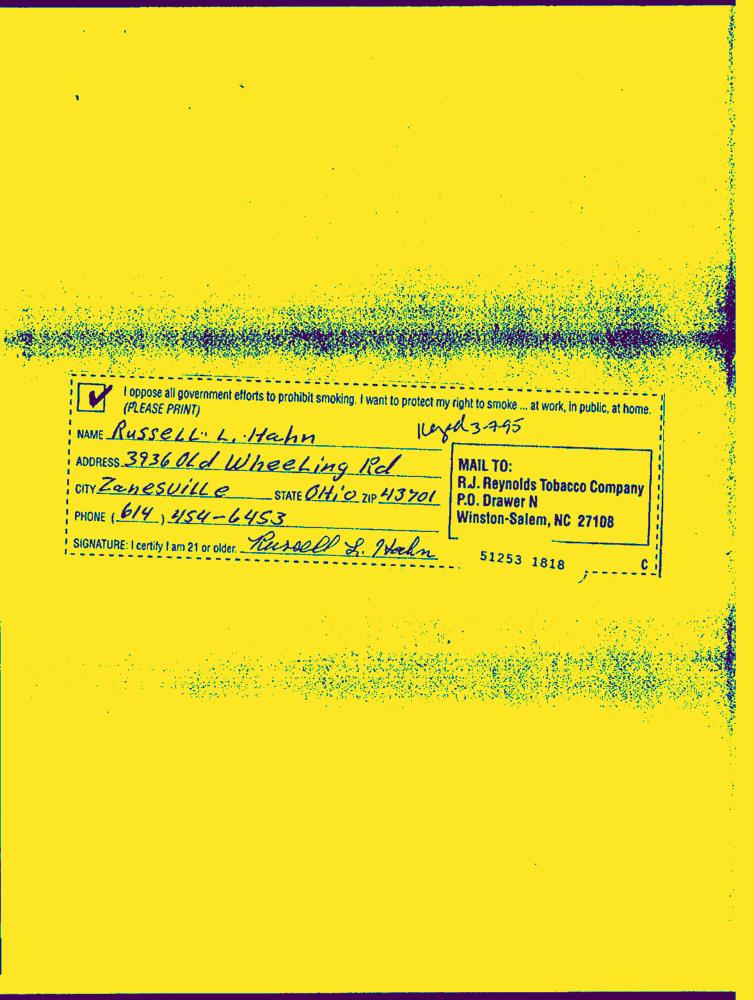 ✔ I oppose all government efforts to prohibit smoking. I want to protect my right to smoke ... at work, in public, at home.
(PLEASE PRINT)
Keyed 3-7-95
NAME Russell L. Hahn
ADDRESS 3936 Old Wheeling Rd
CITY Zanesville STATE Ohio ZIP 43701
PHONE (614) 454-6453
SIGNATURE: I certify I am 21 or older. Russell L. Hahn
MAIL TO:
R.J. Reynolds Tobacco Company
P.O. Drawer N
Winston-Salem, NC 27108
51253 1818
C